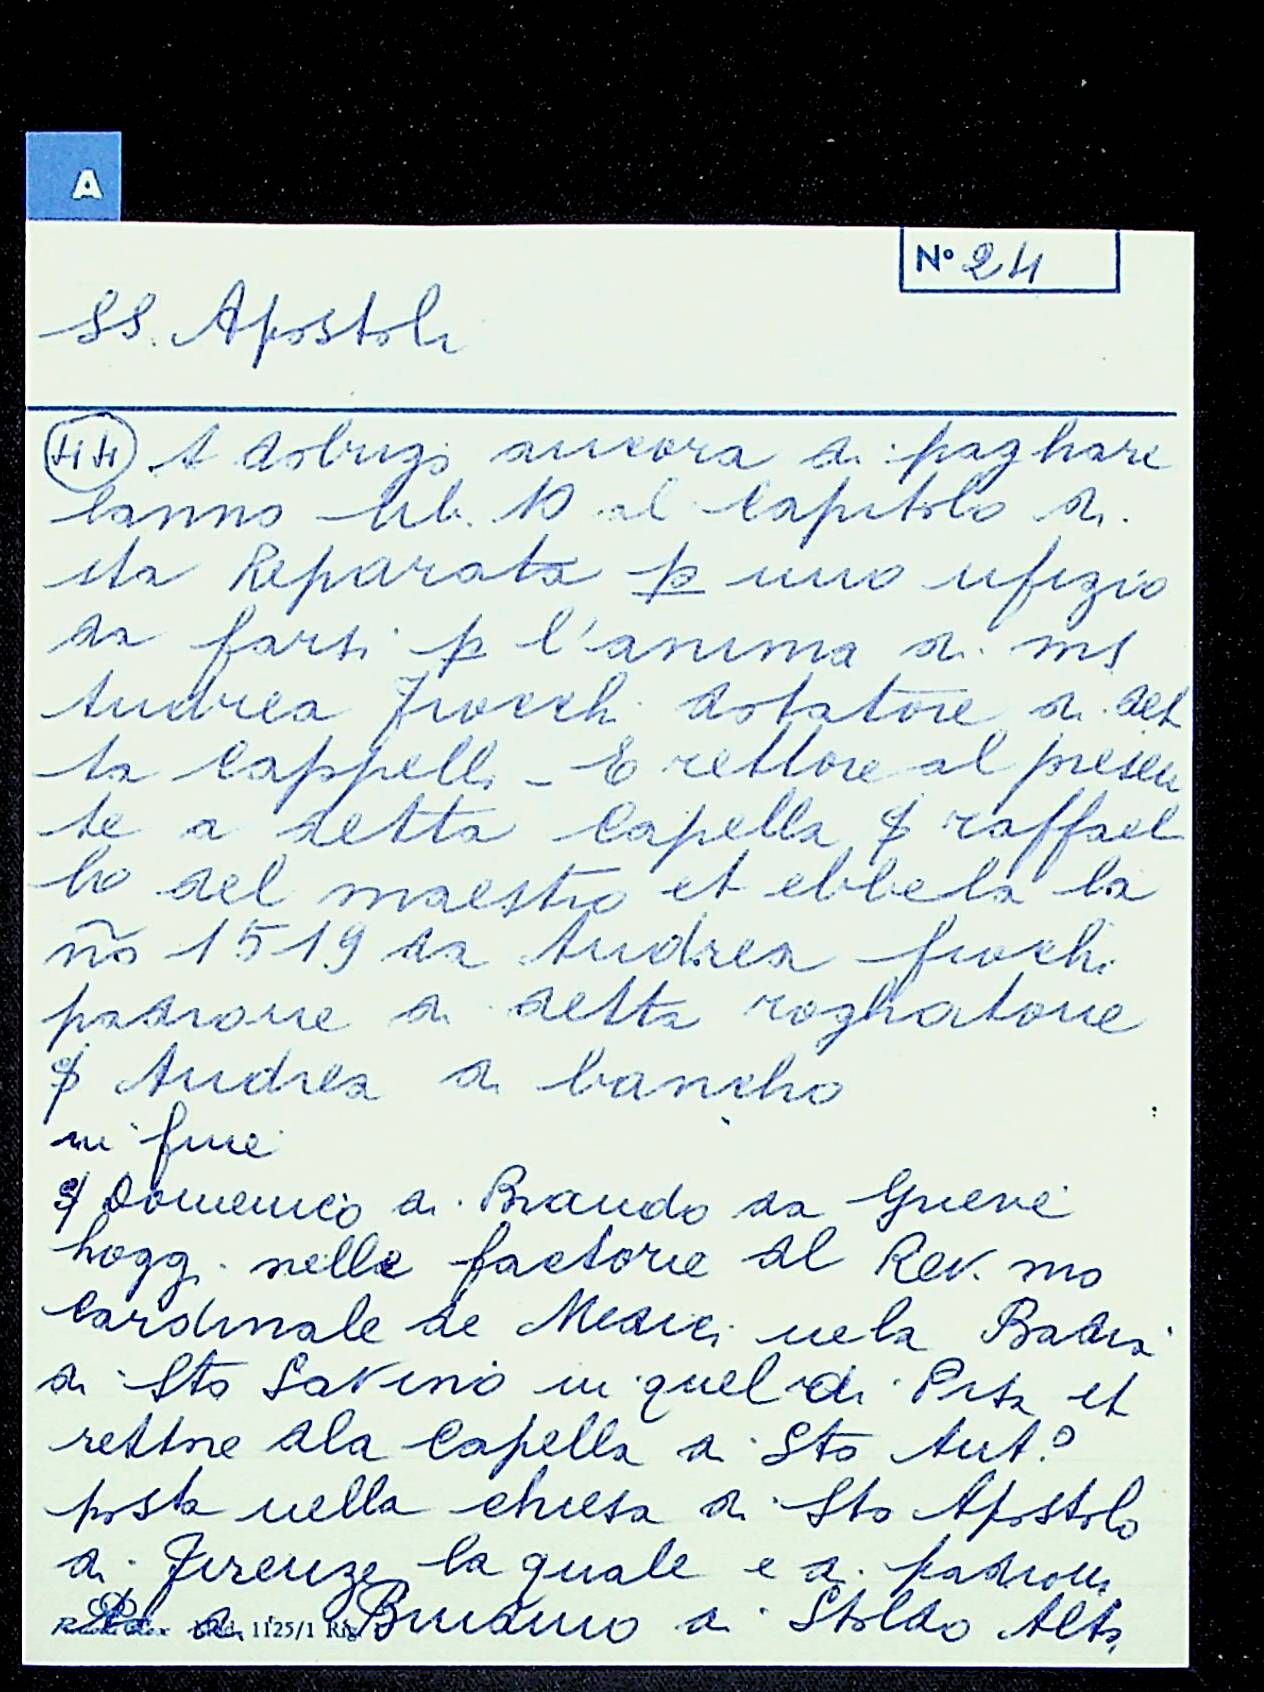 A
N° 24
SS. Apostoli
44 A dobrigo ancora di paghare
lanno lib. 10 al Capitolo di
sta Reparata p uno ufizio
da farsi p l'anima di ms
Andrea Fiocchi dotatore di det
ta Cappella - E rettore al presen
te a detta Capella $ raffael
lo del maestro et ebbela la
ño 1519 da Andrea fiochi
padrone di detta roghatone
$ Andrea di bancho
in fine
$ Domenico di Brando da Greve
hogg. nelle factorie del Rev. mo
Cardinale de Medici nela Badia
di Sto Savino in quel di Pisa et
rettore dela Capella di Sto Ant.o
posta nella chiesa di Sto Apostolo
di Firenze la quale e di padrona
to di di Stoldo Alto
1125/1